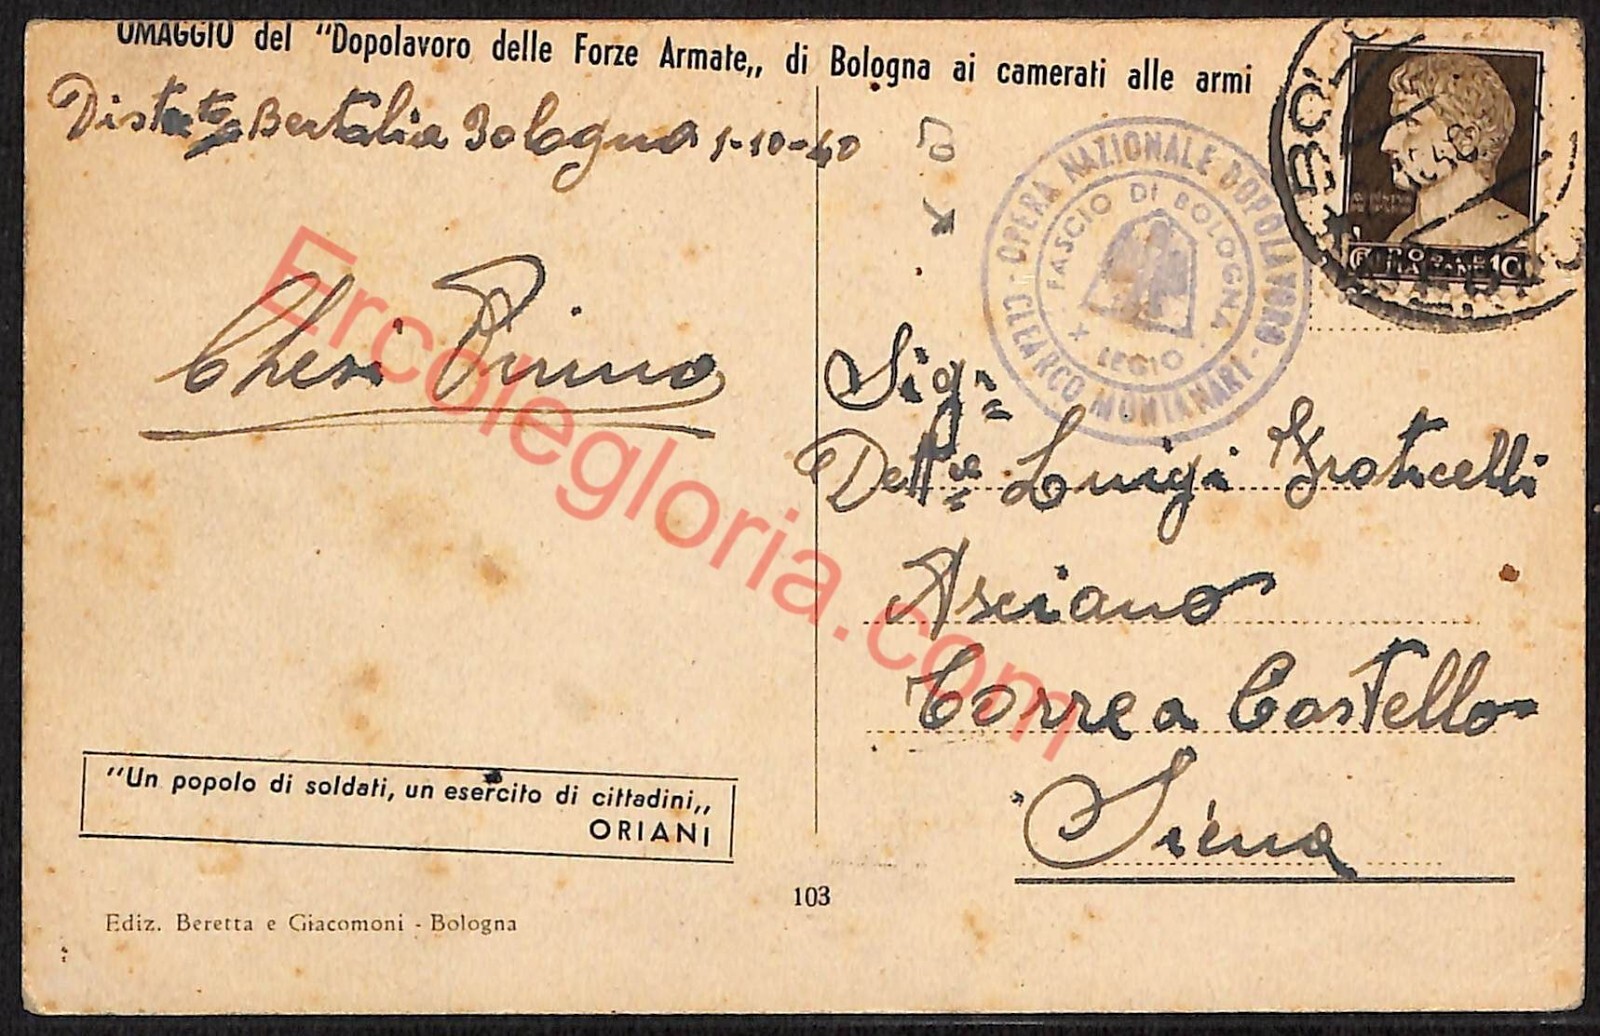 OMAGGIO del "Dopolavoro delle Forze Armate„ di Bologna ai camerati alle armi
Bertalia Bologna 1-10-40
Chesi Pirino
OPERA NAZIONALE DOPOLAVORO
CLEARCO MONTANARI
FASCIO DI BOLOGNA
X LEGIO
BOL
10
Sigr
Luigi Graticelli
Asciano
Torre a Castello
Siena
"Un popolo di soldati, un esercito di cittadini„
ORIANI
103
Ediz. Beretta e Giacomoni - Bologna
Ercolegloria.com